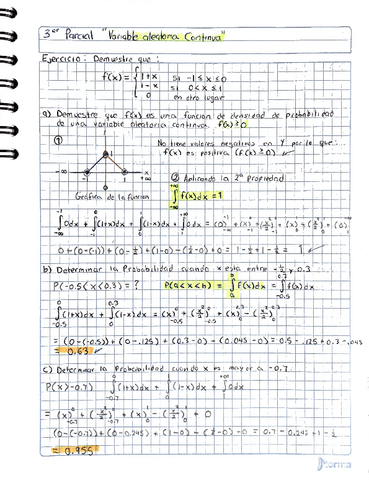 3er Parcial "Variable aleatoria Continua"
Ejercicio: Demuestre que:
f(x) = { 1+x si -1 ≤ x ≤ 0
1-x si 0 < x ≤ 1
0 en otro lugar
a) Demuestre que f(x) es una función de densidad de probabilidad
de una variable aleatoria continua. f(x) ≥ 0
①
No tiene valores negativos en Y por lo que...
f(x) es positiva (f(x) ≥ 0) ✓
-∞ -1 0 1 +∞
Gráfica de la función
② Aplicando la 2° Propiedad
∫_{-∞}^{+∞} f(x)dx = 1
∫_{-∞}^{-1} 0dx + ∫_{-1}^{0} (1+x)dx + ∫_{0}^{1} (1-x)dx + ∫_{1}^{+∞} 0dx
0+(0-(-1))+(0-½)+(1-0)-(½-0)+0 = 1-½+1-½ = 1 ✓
b) Determinar la Probabilidad cuando x esta entre -½ y 0.3
P(-0.5 < x < 0.3) = ? P(a<x<b) = ∫_a^b f(x)dx = ∫ f(x)dx
∫_{-0.5}^{0} (1+x)dx + ∫_{0}^{0.3} (1-x)dx = (x)_{-0.5}^{0} + (x²/2)_{-0.5}^{0} + (x)_{0}^{0.3} - (x²/2)_{0}^{0.3}
= (0-(-0.5))+(0-.125)+(0.3-0)-(0.045-0) = 0.5-.125+0.3-.045
= 0.63 ✓
c) Determinar la probabilidad cuando x es mayor a -0.7
P(x>-0.7) ∫_{-0.7}^{0} (1+x)dx + ∫_{0}^{1} (1-x)dx + ∫_{1}^{+∞} 0dx
= (x)_{-0.7}^{0} + (x²/2)_{-0.7}^{0} + (x)_{0}^{1} - (x²/2)_{0}^{1} + 0
(0-(-0.7))+(0-0.245)+(1-0)-(½-0)-0 = 0.7-0.245+1-½
= 0.955
Norma